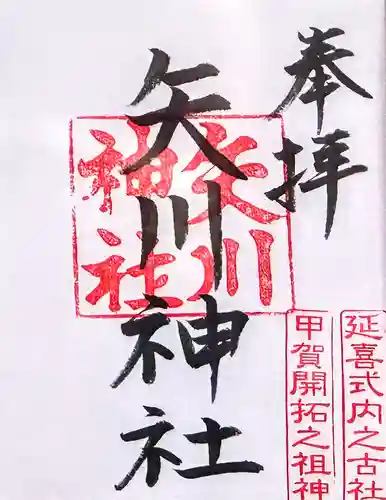 奉拝
矢川神社
矢川
神社
延喜式内之古社
甲賀開拓之祖神